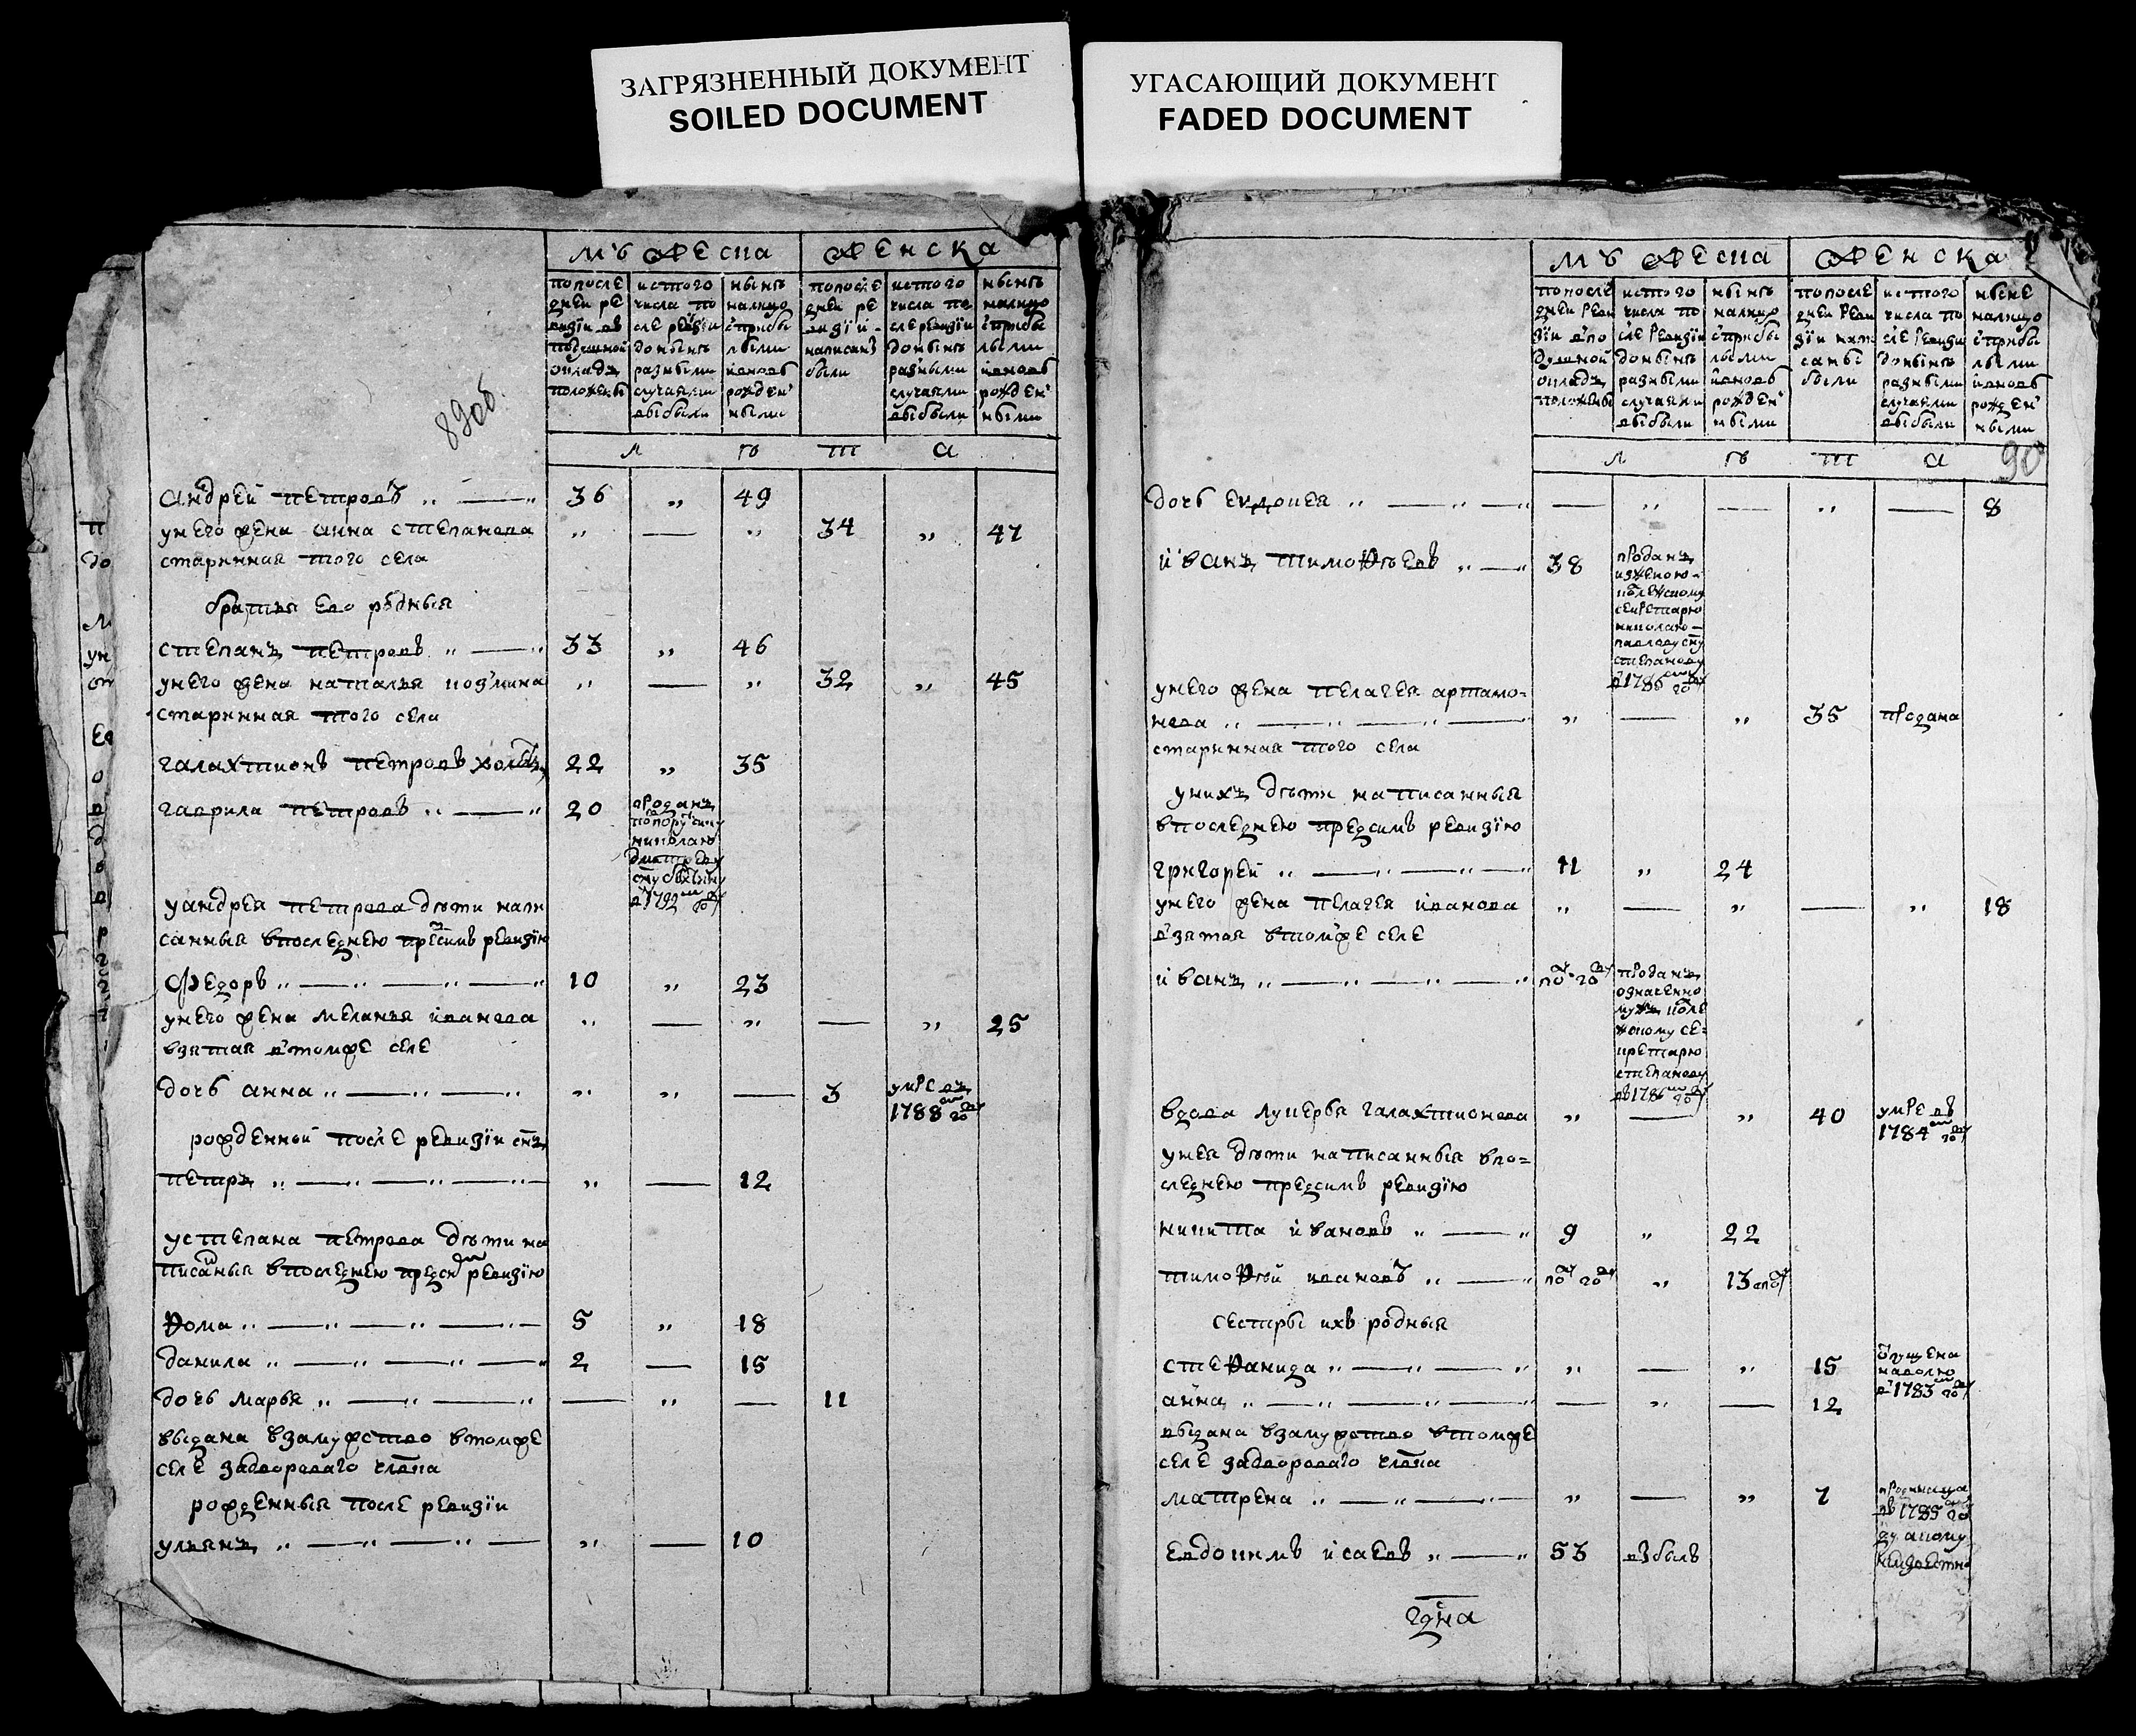 ЗАГРЯЗНЕННЫЙ ДОКУМЕНТ
SOILED DOCUMENT
УГАСАЮЩИЙ ДОКУМЕНТ
FADED DOCUMENT
мꙋжеска женска
попосле дней ревизїи въ подушной окладъ положены
исътого числа после ревизїи донынѣ разными случаями выбыли
нынѣ налицо сприбылыми ивновь рожденными
попосле дней ревизїи написаны были
исътого числа после ревизїи донынѣ разными случаями выбыли
нынѣ налицо сприбылыми ивновь рожденными
л ѣ т а
89об
андрей петровъ „ — „ 36 „ 49
унего жена анна степанова „ — „ 34 „ 47
старинная того села
братья ево родныя
степанъ петровъ „ — „ 33 „ 46
унего жена наталья козмина „ — „ 32 „ 45
старинная того села
галахтионъ петровъ холостъ 22 „ 35
гаврила петровъ „ — „ 20 проданъ
николаю
в 1792 году
уандрея петрова дѣти напи
санныя впоследнею пресимъ ревизїю
Федоръ „ — „ — „ — „ 10 „ 23
унего жена меланья иванова „ — „ — „ 25
взятая втомже селе
дочь анна „ — „ — „ „ „ — 3 умре въ
1788 году
рожденной после ревизїи сынъ
петръ „ — „ — „ — „ — „ — 12
устепана петрова дѣти на
писаныя впоследнею предсим ревизїю
Ѳома „ — „ — „ — „ — 5 „ 18
данила „ — „ — „ — „ 2 — 15
дочь марья „ — „ — „ — „ — 11
выдана взамужство втомже
селе задворового члвка
рожденныя после ревизїи
ульянъ „ — „ — „ — „ — 10
мꙋжеска женска
попосле дней ревизїи вподушной окладъ положены
исътого числа после ревизїи донынѣ разными случаями выбыли
нынѣ налицо сприбылыми ивновь рожденными
попосле дней ревизїи написаны были
исътого числа после ревизїи донынѣ разными случаями выбыли
ныне налицо сприбылыми ивновь рожденными
л ѣ т а
90
дочь евдокея „ — „ — „ — „ — „ — 8
иванъ тимоѲѣевъ „ — „ 38 проданъ
секретарю
николаю
павлову сну
степанову
в 1786 году
унего жена пелагея артамо=
нова „ — „ — „ — „ — „ 35 продана
старинная того села
унихъ дѣти написанныя
впоследнею предсимъ ревизїю
григорей „ — „ — „ — „ 11 „ 24
унего жена пелагея иванова „ — „ — „ 18
взятая втомже селе
иванъ „ — „ — „ — „ полу году проданъ
означенно
мужъ
секретарю
степанову
въ 1786 году
вдова лукерья галахтионова „ — „ 40 умре въ
1784 году
унея дѣти написанныя впо=
следнею предсимъ ревизїю
никита ивановъ „ — „ 9 „ 22
тимоѲѣй ивановъ „ — „ полу году „ 13 спол
сестры ихъ родныя
стеѲанида „ — „ — „ „ — „ 15 отпущена
наволю
в 1783 году
анна „ — „ — „ — „ — „ — 12
выдана взамужство втомже
селе задворового члвка
матрена „ — „ — „ — „ — „ 7
въ 1785 году
евдокимъ исаевъ „ — „ 53 взбылъ